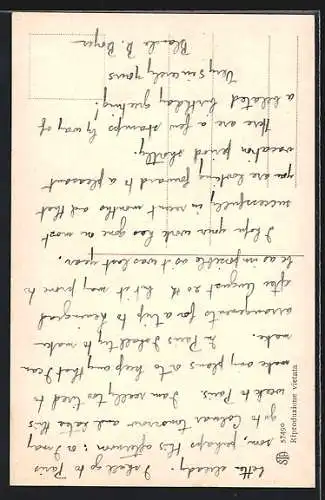 better already. I shall go to Paris
soon, perhaps this afternoon: or I may
go to Colmar tomorrow and later this
week to Paris. I am really too tired to
make any plans or to keep any that I can
make. In Paris I shall try to make
arrangements for a trip to Leningrad
after August 20th, but it may prove to
be as impossible as it was last year.
I hope your work has gone on most
successfully in recent months and that
you are looking forward to a pleasant
vacation period shortly.
Here are a few stamps by way of
a belated birthday greeting!
Very sincerely yours
Blanche B. Boyer
57490
Riproduzione vietata